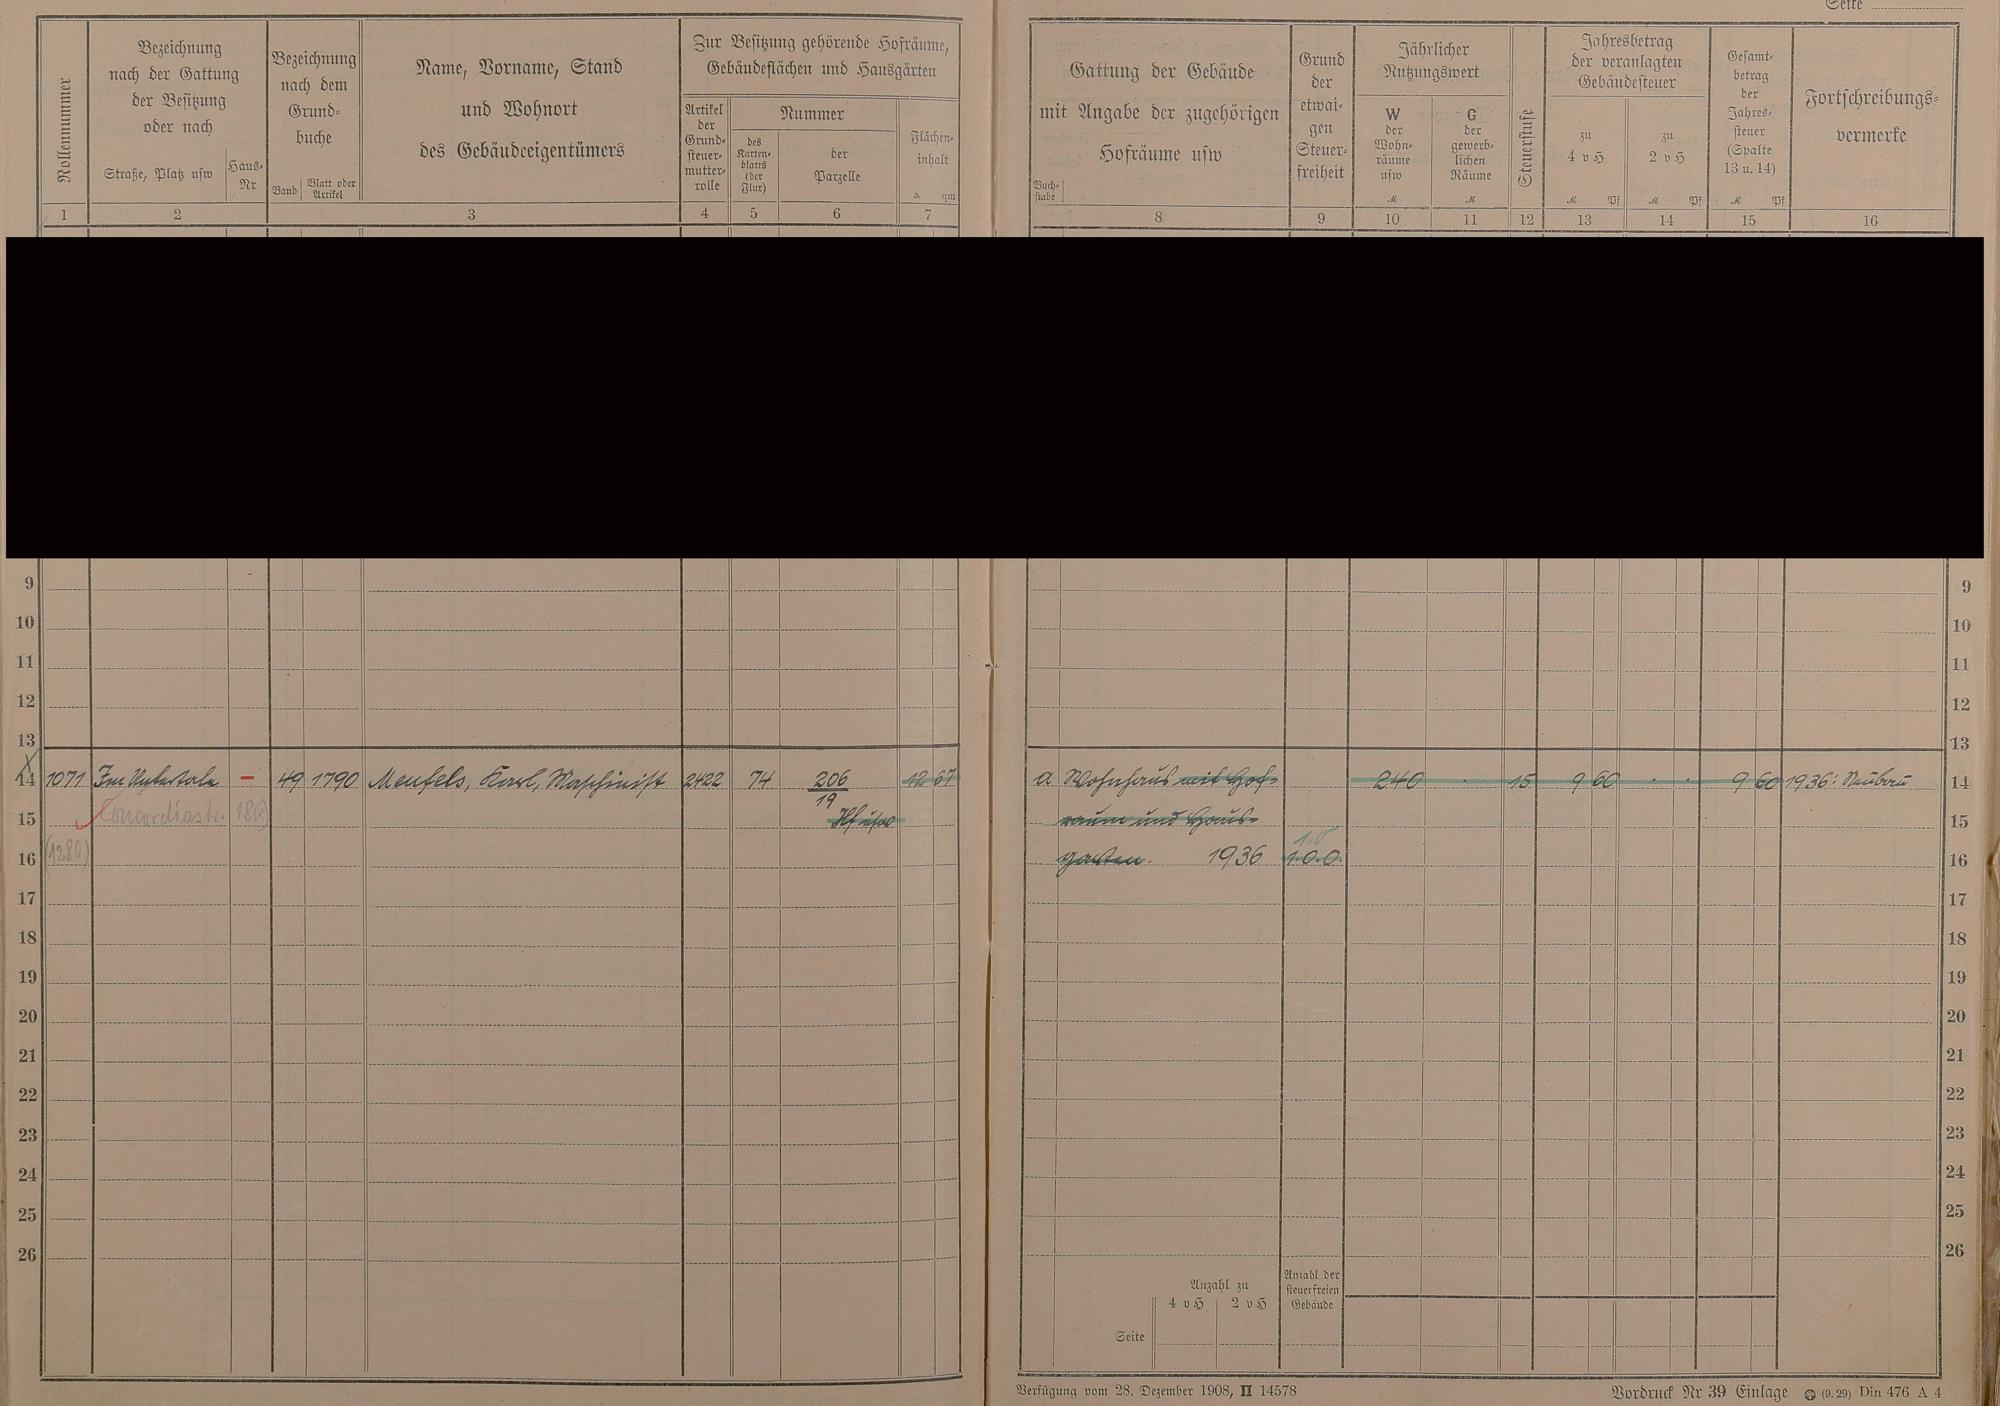 Seite
Rollennummer
Bezeichnung
nach der Gattung
der Besitzung
oder nach
Straße, Platz usw
Haus-
Nr
Bezeichnung
nach dem
Grund-
buche
Band
Blatt oder
Artikel
Name, Vorname, Stand
und Wohnort
des Gebäudeeigentümers
Zur Besitzung gehörende Hofräume,
Gebäudeflächen und Hausgärten
Artikel
der
Grund-
steuer-
mutter-
rolle
Nummer
des
Karten-
blatts
(der
Flur)
der
Parzelle
Flächen-
inhalt
a qm
Gattung der Gebäude
mit Angabe der zugehörigen
Hofräume usw
Buch-
stabe
Grund
der
etwai-
gen
Steuer-
freiheit
Jährlicher
Nutzungswert
W
der
Wohn-
räume
usw
M
G
der
gewerb-
lichen
Räume
M
Steuerstufe
Jahresbetrag
der veranlagten
Gebäudesteuer
zu
4 v H
M Pf
zu
2 v H
M Pf
Gesamt-
betrag
der
Jahres-
steuer
(Spalte
13 u. 14)
M Pf
Fortschreibungs-
vermerke
1 2 3 4 5 6 7 8 9 10 11 12 13 14 15 16
9 9
10 10
11 11
12 12
13 13
14 1071 Im Untertale – 49 1790 Meufels, Karl, Maschinist 2422 74 206/19 12 67 a Wohnhaus mit Hof- 240 · 15 9 60 · · 9 60 1936: Neubau 14
15 Concordiastr. Hf usw raum und Haus- 15
16 (1280) garten. 1936 1.0.0. 16
17 17
18 18
19 19
20 20
21 21
22 22
23 23
24 24
25 25
26 26
Anzahl zu
4 v H 2 v H
Anzahl der
steuerfreien
Gebäude
Seite
Verfügung vom 28. Dezember 1908, II 14578
Vordruck Nr 39 Einlage (9. 29) Din 476 A 4